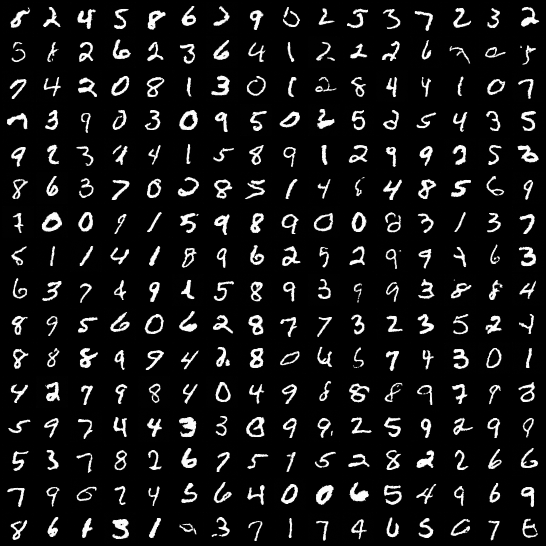 8 2 4 5 8 6 2 9 0 2 5 3 7 2 3 2
5 8 2 6 2 3 6 4 1 2 2 2 6 7 0 5
7 4 2 0 8 1 3 0 1 2 8 4 4 1 0 7
7 3 9 0 3 0 9 5 0 2 5 2 5 4 3 5
9 2 3 2 4 1 5 8 9 1 2 9 9 2 5 3
8 6 3 7 0 2 8 5 1 4 8 4 8 5 6 9
7 0 0 9 1 5 9 8 9 0 0 8 3 1 3 7
8 1 1 4 1 8 9 6 2 5 2 9 9 4 6 3
6 3 7 4 9 1 5 8 9 3 9 9 3 8 8 4
8 9 5 6 0 6 2 8 7 7 3 2 3 5 2 4
8 8 8 9 9 4 2 8 0 4 6 7 4 3 0 1
4 2 7 9 8 4 0 4 9 8 8 8 9 7 9 8
5 9 7 4 4 3 3 0 9 9 2 5 9 2 9 9
5 3 7 8 2 6 7 5 1 5 2 8 2 2 6 6
7 9 6 2 4 5 6 4 0 0 6 5 4 9 6 9
8 6 1 3 1 2 3 7 1 7 4 6 5 0 7 8